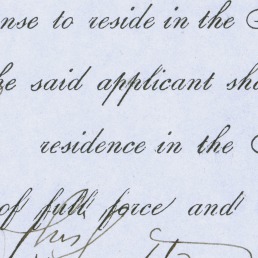 nse to reside in the
said applicant sha
residence in the
of full force and
this